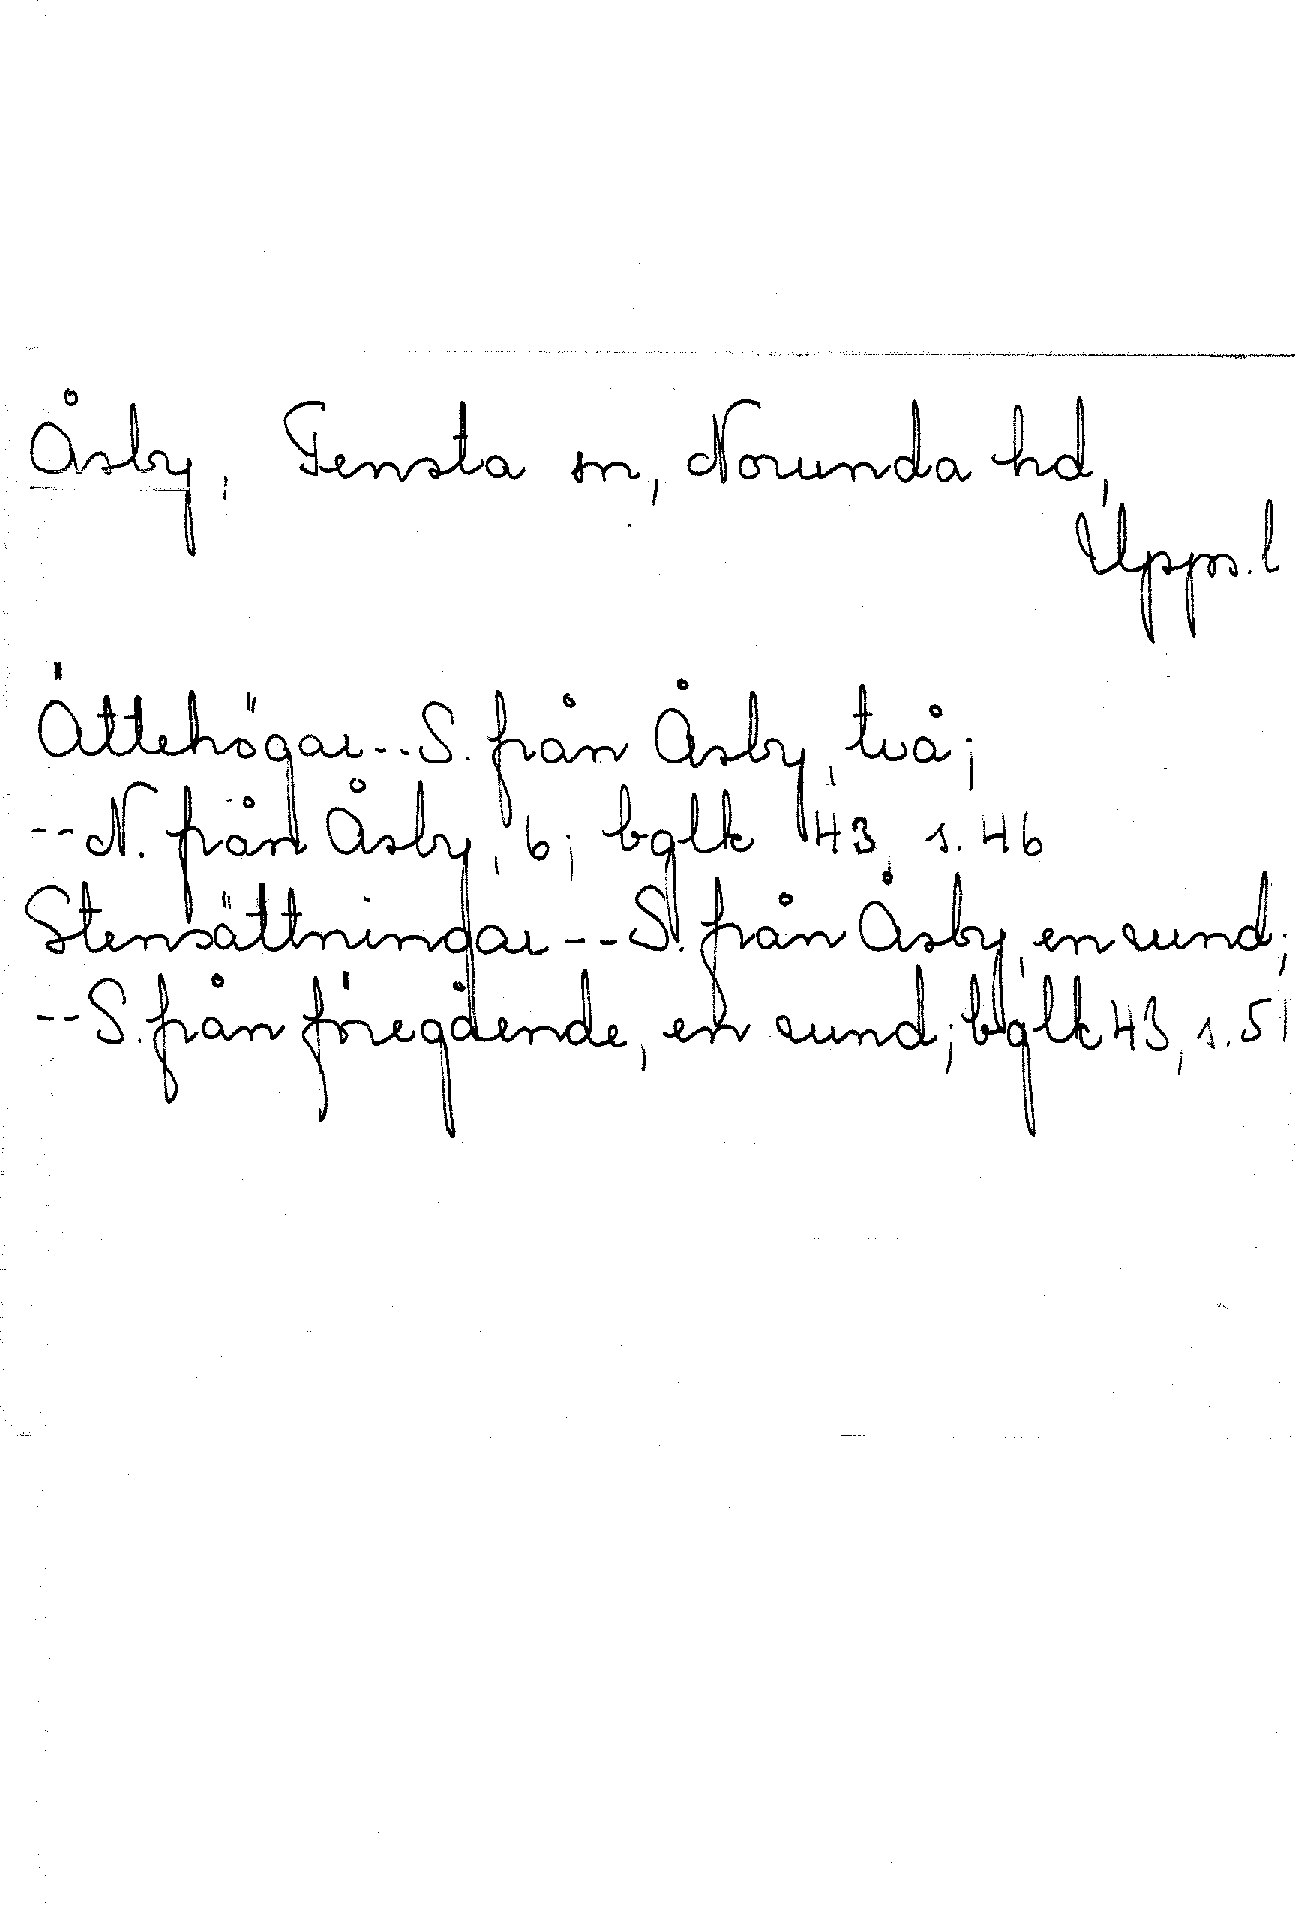 Åsby, Tensta sn, Norunda hd,
Upps. l
Ättehögar--S. från Åsby, två;
--N. från Åsby, 6; bglk 43, s. 46
Stensättningar--S. från Åsby, en rund;
--S. från föregående, en rund; bglk 43, s. 51